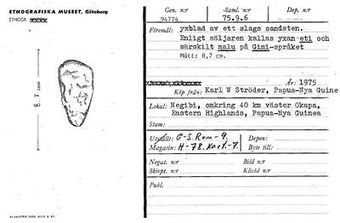 ETNOGRAFISKA MUSEET, Göteborg
ETNOGR
8.7 cm
Gen. n:r
94774
Saml. n:r
75.9.6
Föremål: yxblad av ett slags sandsten.
Enligt säljaren kallas yxan eti och
särskilt malu på Gimi-språket
Mått: 8,7 cm.
Köp från: Karl W Ströder, Papua-Nya Guine
År 1975
Lokal: Negibi, omkring 40 km väster Okapa,
Eastern Highlands, Papua-Nya Guinea
Stam:
Utställt: G-S. Rum-9.
Magasin: H-78. Kort.-7.
Depon:
Byte till:
Negat. n:r
Bild n:r
Skiopt. n:r
Kliché n:r
Publ.